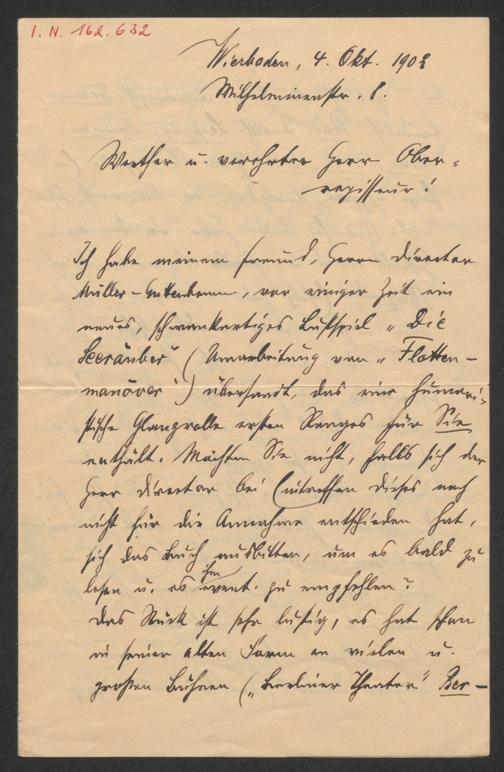 I. N. 162.632
Wiesbaden, 4. Okt. 1902
Wilhelminenstr. 8.
Werther u. verehrter Herr Ober-
regisseur!
Ich habe meinem Freund, Herrn Director
Müller-Gutenbrunn, vor einiger Zeit ein
neues, schwankartiges Lustspiel „Die
Seeräuber" (Umarbeitung von „Flotten-
manöver") übersandt, das eine humori-
stische Glanzrolle ersten Ranges für Sie
enthält. Möchten Sie nicht, falls sich der
Herr Director bei Eintreffen dieses noch
nicht für die Annahme entschieden hat,
sich das Buch ausbitten, um es bald zu
lesen u. es ihm event. zu empfehlen?
Das Stück ist sehr lustig, es hat schon
in seiner alten Form an vielen u.
großen Bühnen („Berliner Theater" Ber-